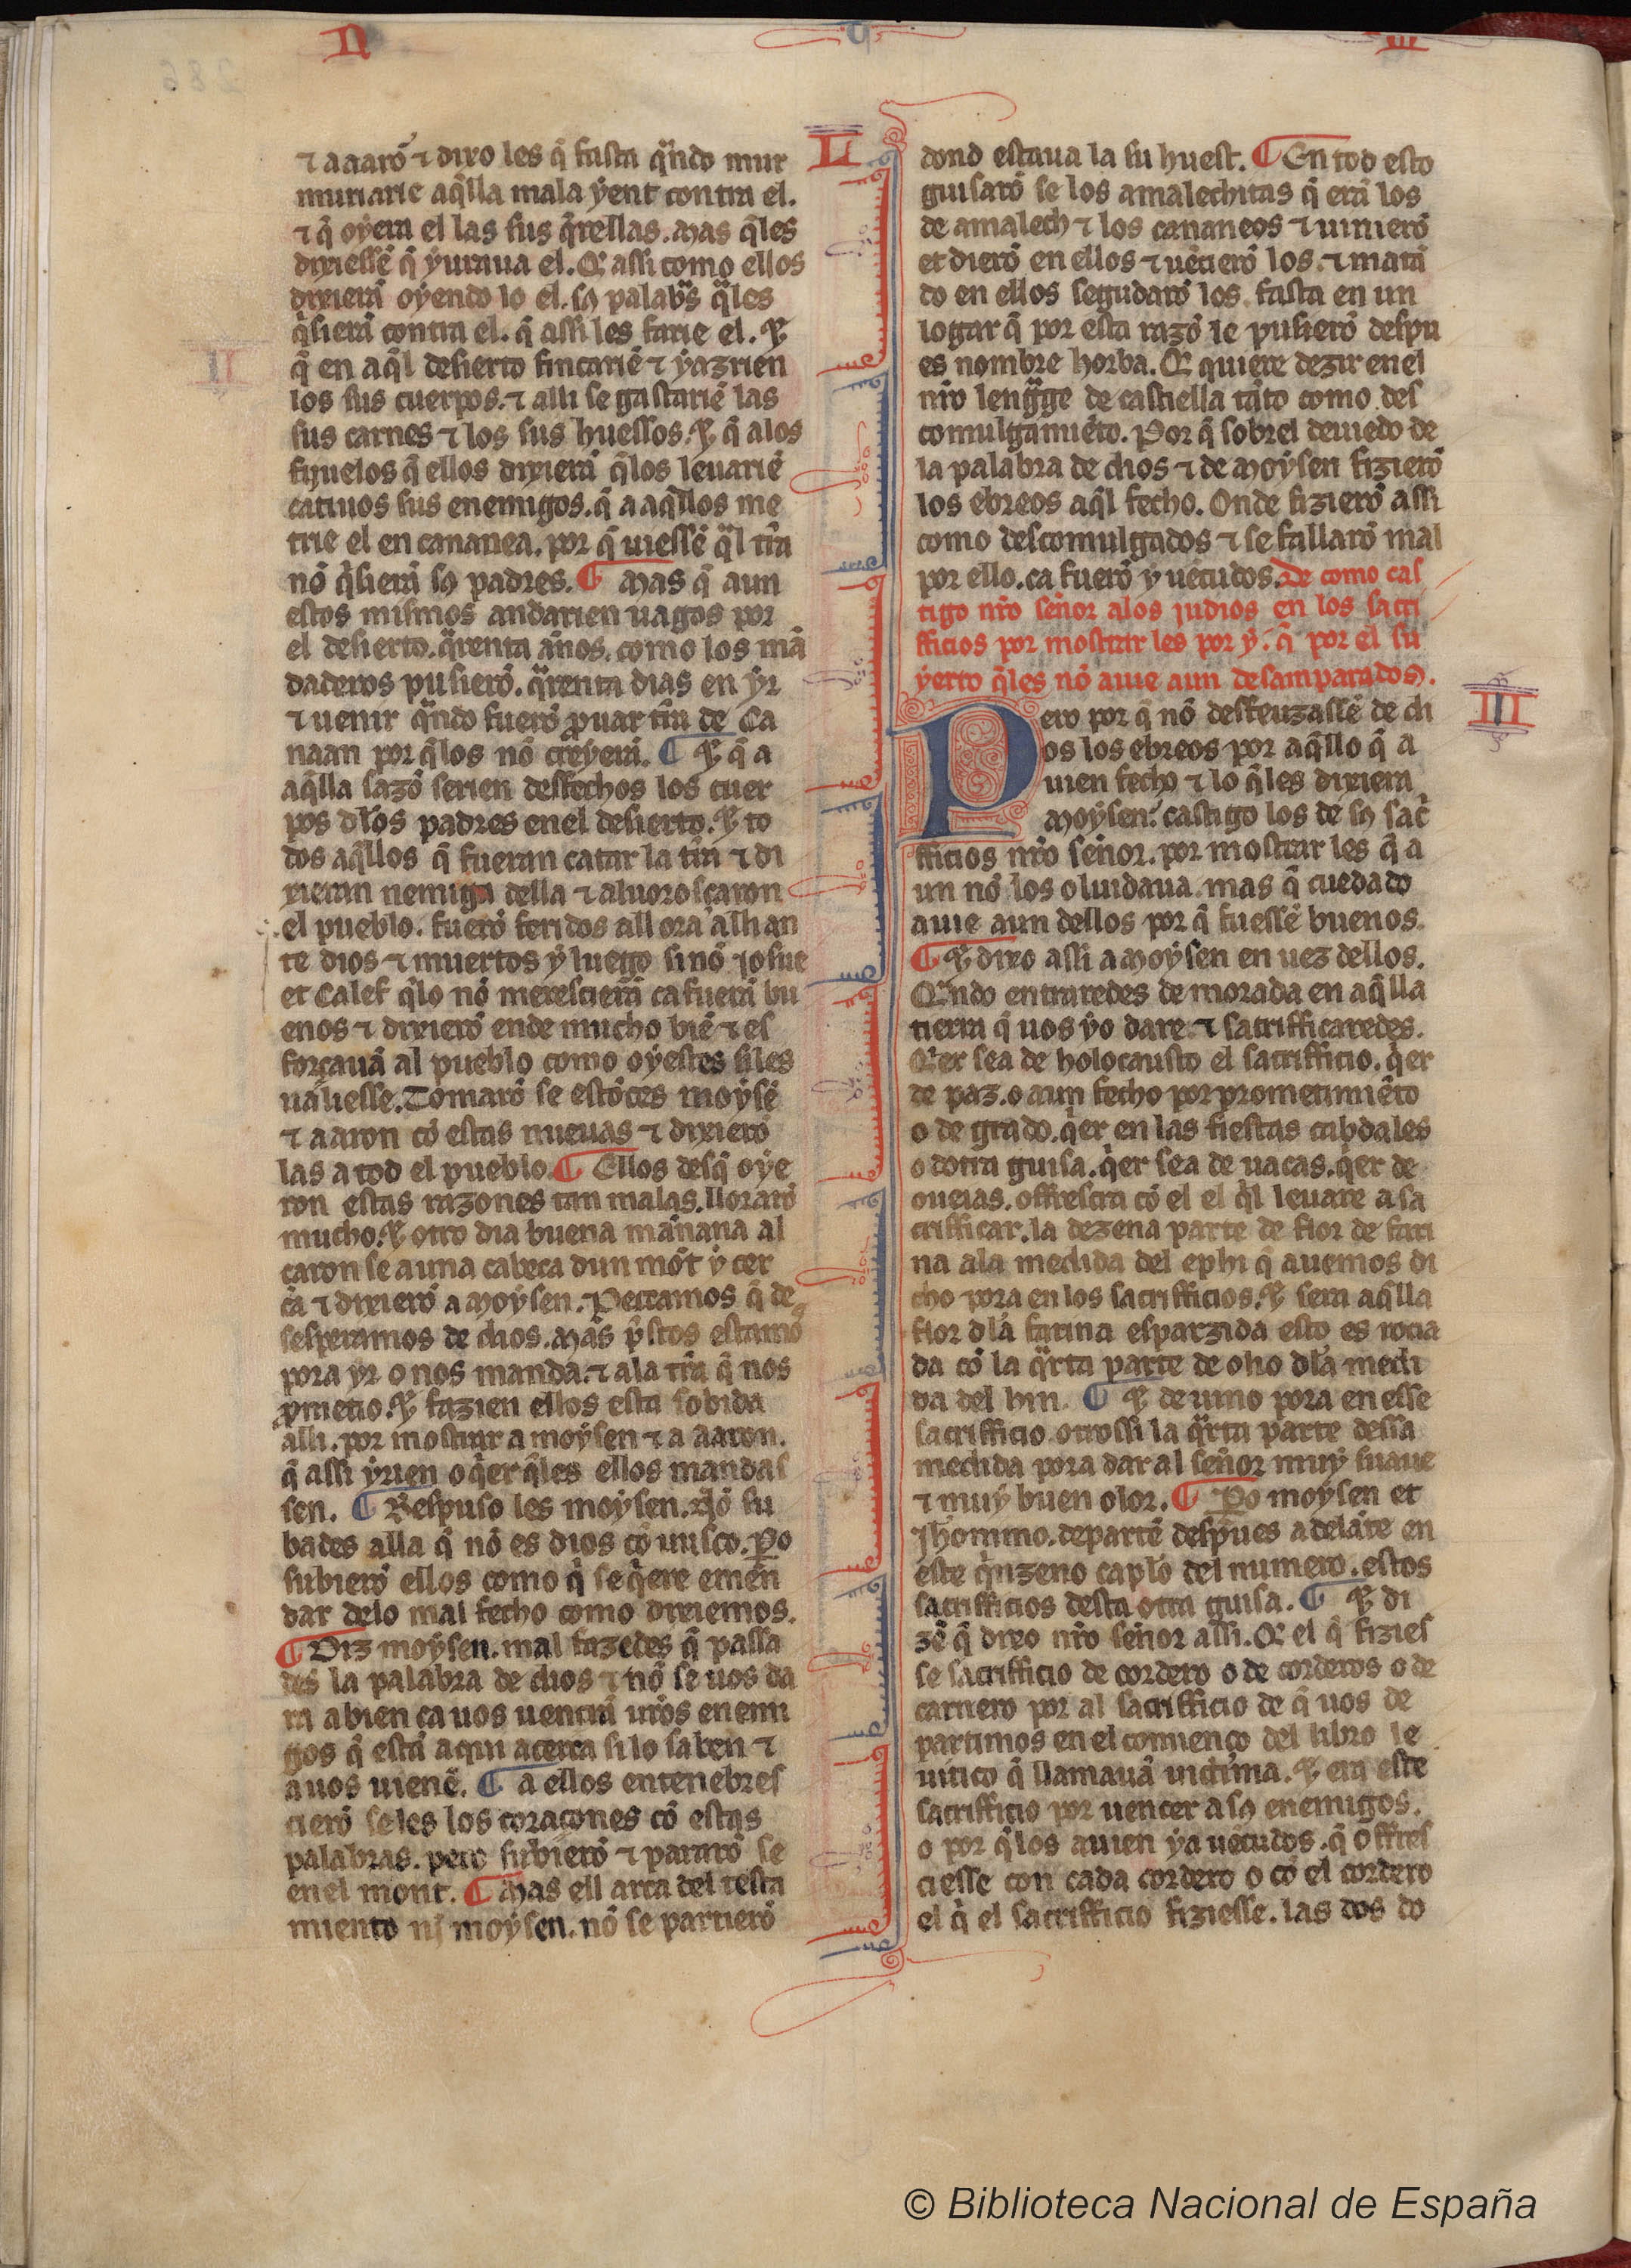 N
U
III
⁊ aaarõ ⁊ dixo les q̃ fasta qͣndo mur
muriarie aq̃lla mala yent contra el.
⁊ q̃ oyera el las sus q̃rellas. Mas q̃les
dixiessẽ q̃ yuraua el. Q̃ assi como ellos
dixierã oyendo lo el. sꝯ palabͣs qͣles
q̃sierã contra el. q̃ assi les farie el. ⁊
q̃ en aq̃l desierto fincariẽ ⁊ yazrien
los sus cuerpos. ⁊ alli se gastariẽ las
sus carnes ⁊ los sus huessos. ⁊ q̃ alos
fijuelos q̃ ellos dixierã q̃los leuariẽ
catiuos sus enemigos. q̃ a aq̃llos me
trie el en cananea. por q̃ uiessẽ qͣl tr̃a
nõ q̃sierã sꝯ padres. ¶ Mas q̃ aun
estos mismos andarien uagos por
el desierto. qͣrenta años. como los mã
daderos pusierõ. qͣrenta dias en yr
⁊ uenir qͣndo fuerõ ꝓuar tr̃a de Ca
naan por q̃los nõ creyerã. ¶ ⁊ q̃ a
aq̃lla sazõ serien dessechos los cuer
pos dlos padres enel desierto. ⁊ to
dos aq̃llos q̃ fueran catar la tr̃a ⁊ di
xieran nemiga della ⁊ aluoroscaron
el pueblo. fuerõ feridos all ora alli an
te dios ⁊ muertos y luego sinõ Josue
et Calef q̃lo nõ merescierã ca fuerã bu
enos ⁊ dixierõ ende mucho biẽ ⁊ es
forçauã al pueblo como oyestes siles
ualiesse. Tomarõ se estõces moysẽ
⁊ aaron cõ estas nueuas ⁊ dixierõ
las a tod el pueblo. ¶ Ellos desq̃ oye
ron estas razones tan malas. llorarõ
mucho. ⁊ otro dia buena mañana al
çaron se a una cabeça dun mõt y cer
ca ⁊ dixierõ a Moysen. Peccamos q̃ de
sesperamos de dios. Mas p̃stos estamõ
pora yr o nos manda. ⁊ ala tr̃a q̃ nos
ꝓmetio. ⁊ fazien ellos esta sobida
alli. por mostrar a moysen ⁊ a aaron.
q̃ assi yrien o q̃er q̃les ellos mandas
sen. ¶ Respuso les moysen. Nõ su
bades alla q̃ nõ es dios cõ uusco. P̲o
subierõ ellos como q̃ se q̃ere emen
dar delo mal fecho como dixiemos.
¶ Diz moysen. mal fazedes q̃ passa
des la palabra de dios ⁊ nõ se uos da
ra a bien ca uos uencrã ur̃os enemi
gos q̃ estã aqui acerca si lo saben ⁊
auos uienẽ. ¶ a ellos entenebres
cierõ seles los coraçones cõ estas
palabras. pero subierõ ⁊ pararõ se
enel mont. ¶ Mas ell arca del testa
miento nj moysen. nõ se partierõ
L
dond estaua la su huest. ¶ En tod esto
guisarõ se los amalechitas q̃ erã los
de amalech ⁊ los cananeos ⁊ uinierõ
et dierõ en ellos ⁊ uẽcierõ los. ⁊ matã
do en ellos segudarõ los. fasta en un
logar q̃ por esta razõ le pusierõ despu
es nombre horba. Q̃ quiere dezir enel
nr̃o lengͣge de castiella tãto como des
comulgamiẽto. Por q̃ sobrel deuiedo de
la palabra de dios ⁊ de Moysen fizierõ
los ebreos aq̃l fecho. Onde fizierõ assi
como descomulgados ⁊ se fallarõ mal
por ello. ca fuerõ y uẽcudos. De como cas
tigo nr̃o señor alos judios en los sacri
fficios por mostrar les por y. q̃ por el su
yerro q̃les nõ auie aun desamparados.
III
Pero por q̃ nõ desfeuzassẽ de di
os los ebreos por aq̃llo q̃ a
uien fecho ⁊ lo q̃les dixiera
Moysen. castigo los de sꝯ sacͥ
fficios nr̃o señor. por mostrar les q̃ a
un nõ los oluidaua. mas q̃ cuedado
auie aun dellos por q̃ fuessẽ buenos.
¶ ⁊ dixo assi a Moysen en uez dellos.
Qͣndo entraredes de morada en aq̃lla
tierra q̃ uos yo dare. ⁊ sacrifficaredes.
Q̃er sea de holocausto el sacrifficio. q̃er
de paz. o aun fecho por prometimiẽto
o de grado. q̃er en las fiestas cabdales
o dotra guisa. q̃er sea de uacas. q̃er de
oueias. offrescra cõ el el q̃l leuare a sa
crifficar. la dezena parte de flor de fari
na ala medida del ephi q̃ auemos di
cho pora en los sacrifficios. ⁊ sera aq̃lla
flor dla farina esparzida esto es rocia
da cõ la qͣrta parte de olio dla medi
da del hin. ¶ ⁊ de uino pora en esse
sacrifficio otrossi la qͣrta parte dessa
medida pora dar al señor muy suaue
⁊ muy buen olor. ¶ P̲o moysen et
Jheronimo. departẽ despues adelãte en
este q̃nzeno capl̃o del numero. estos
sacrifficios desta otra guisa. ¶ ⁊ di
zẽ q̃ dixo nr̃o señor assi. Q̃ el q̃ fizies
se sacrifficio de cordero o de corderos o de
carnero por al sacrifficio de q̃ uos de
partimos en el comienço del libro le
uitico q̃ llamauã uictima. ⁊ era este
sacrifficio por uencer a sꝯ enemigos.
o por q̃los auien ya uẽcudos. q̃ offres
ciesse con cada cordero o cõ el cordero
el q̃ el sacrifficio fiziesse. las dos do
© Biblioteca Nacional de España